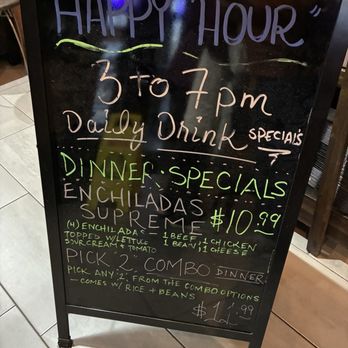 HAPPY HOUR"
3 To 7pm
Daily Drink SPECIALS
DINNER · SPECIALS
ENCHILADAS
SUPREME $10.99
(4) ENCHILADAS 1 BEEF, 1 CHICKEN
TOPPED W/ LETTUCE 1 BEAN, 1 CHEESE
SOUR CREAM & TOMATO
PICK "2" COMBO DINNER
PICK ANY "2" FROM THE COMBO OPTIONS
- COMES W/ RICE + BEANS